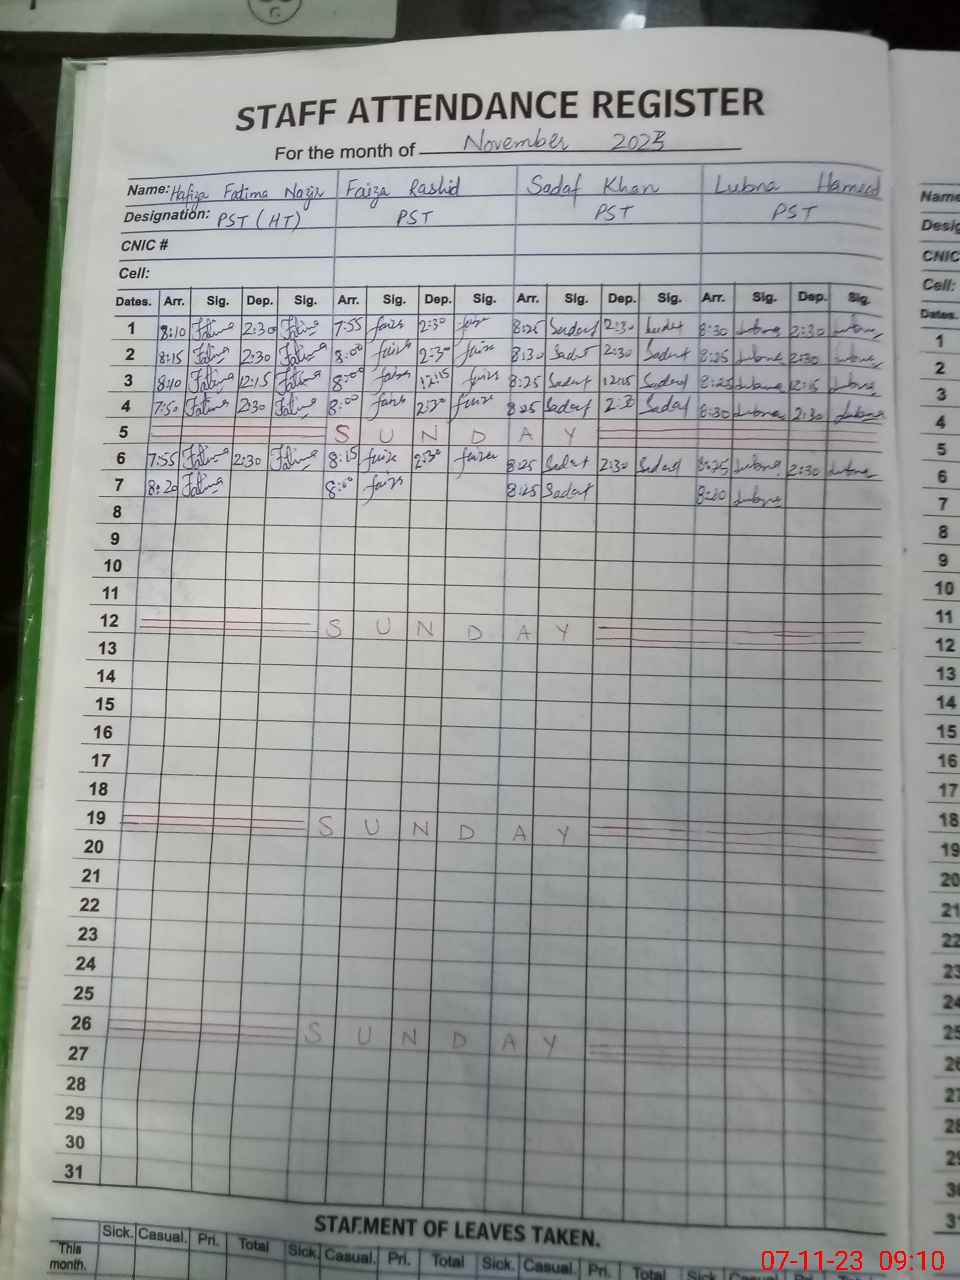 STAFF ATTENDANCE REGISTER
For the month of November 2023
Name: Hafiza Fatima Nazir Faiza Rashid Sadaf Khan Lubna Hameed
Designation: PST (HT) PST PST PST
CNIC #
Cell:
Dates. Arr. Sig. Dep. Sig. Arr. Sig. Dep. Sig. Arr. Sig. Dep. Sig. Arr. Sig. Dep. Sig.
1 8:10 Fatima 2:30 Fatima 7:55 faiza 2:30 faiza 8:25 Sadaf 2:30 8:30 Lubna 2:30 Lubna
2 8:15 Fatima 2:30 Fatima 8:00 faiza 2:30 faiza 8:30 Sadaf 2:30 Sadaf 8:25 Lubna 2:30 Lubna
3 8:10 Fatima 12:15 Fatima 8:00 faiza 12:15 faiza 8:25 Sadaf 12:15 Sadaf 8:25 Lubna 12:15 Lubna
4 7:50 Fatima 2:30 Fatima 8:00 faiza 2:30 faiza 8:25 Sadaf 2:30 Sadaf 8:30 Lubna 2:30 Lubna
5 S U N D A Y
6 7:55 Fatima 2:30 Fatima 8:15 faiza 2:30 faiza 8:25 Sadaf 2:30 Sadaf 8:25 Lubna 2:30 Lubna
7 8:20 Fatima 8:00 faiza 8:25 Sadaf Lubna
8
9
10
11
12 S U N D A Y
13
14
15
16
17
18
19 S U N D A Y
20
21
22
23
24
25
26 S U N D A Y
27
28
29
30
31
STATMENT OF LEAVES TAKEN.
Sick. Casual. Pri. Total Sick. Casual. Pri. Total Sick. Casual. Pri. Total Sick Casual.
This month.
Name
CNIC
Cell:
Dates.
1
2
3
4
5
6
7
8
9
10
11
12
13
14
15
16
17
18
19
20
21
22
23
24
25
26
07-11-23 09:10